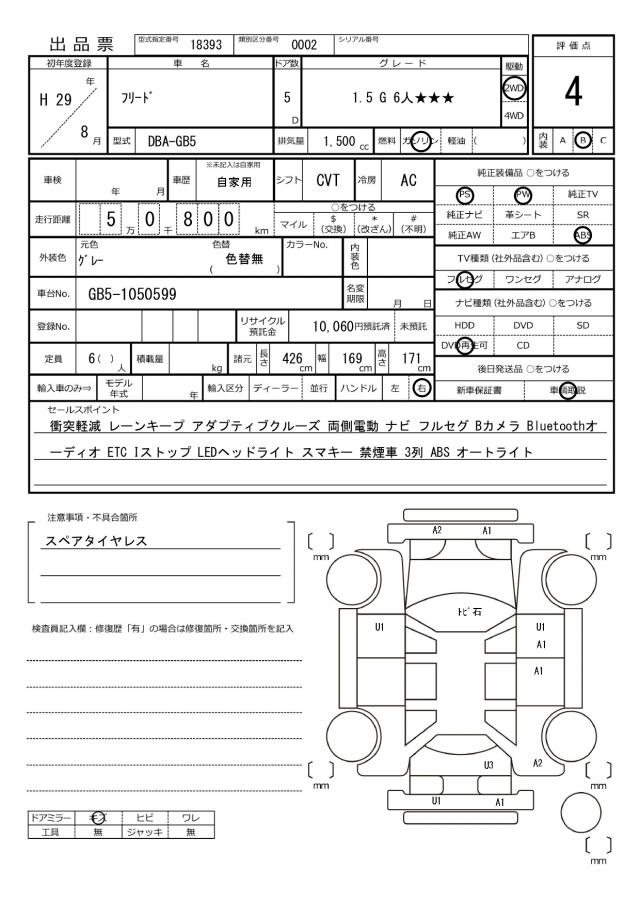 出品票 型式指定番号 18393 類別区分番号 0002 シリアル番号
評価点
初年度登録 車名 ドア数 グレード 駆動
H 29 年 8 月 フリード 5 D 1.5 G 6人★★★ 2WD 4WD
4
型式 DBA-GB5 排気量 1,500 cc 燃料 ガソリン 軽油 ( )
内装 A B C
車検 年 月 車歴 ※未記入は自家用 自家用 シフト CVT 冷房 AC
純正装備品 ○をつける
PS PW 純正TV
純正ナビ 革シート SR
純正AW エアB ABS
走行距離 5 万 0 千 8 0 0 km
○をつける
マイル $ (交換) * (改ざん) # (不明)
外装色 元色 グレー 色替 ( 色替無 ) カラーNo. 内装色
TV種類 (社外品含む) ○をつける
フルセグ ワンセグ アナログ
車台No. GB5-1050599 名変期限 月 日
ナビ種類 (社外品含む) ○をつける
HDD DVD SD
DVD再生可 CD
登録No. リサイクル預託金 10,060円預託済 未預託
定員 6( ) 人 積載量 kg 諸元 長さ 426 cm 幅 169 cm 高さ 171 cm
後日発送品 ○をつける
新車保証書 車輌取説
輸入車のみ⇒ モデル年式 年 輸入区分 ディーラー 並行 ハンドル 左 右
セールスポイント
衝突軽減 レーンキープ アダプティブクルーズ 両側電動 ナビ フルセグ Bカメラ Bluetoothオ
ーディオ ETC Iストップ LEDヘッドライト スマキー 禁煙車 3列 ABS オートライト
注意事項・不具合箇所
スペアタイヤレス
検査員記入欄：修復歴「有」の場合は修復箇所・交換箇所を記入
A2 A1
mm mm
トビ石
U1 U1
A1
A1
U3 A2
mm mm
U1 A1
mm
ドアミラー キズ ヒビ ワレ
工具 無 ジャッキ 無